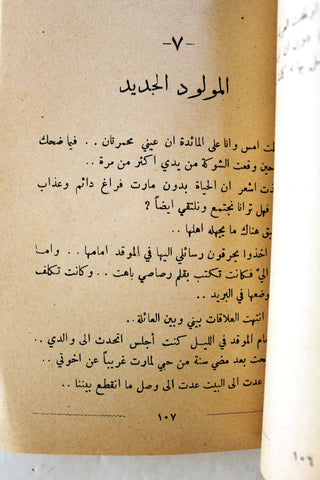 -٧-
المولود الجديد
امس وانا على المائدة ان عيني محمرتان . . فيما ضحك
حين وقعت الشوكة من يدي اكثر من مرة . .
اشعر ان الحياة بدون مارت فراغ دائم وعذاب
فهل ترانا نجتمع ونلتقي ايضاً ؟
هناك ما يجهله اهلها . .
اخذوا يحرقون رسائلي اليها في الموقد امامها . . واما
اليّ فكانت تكتب بقلم رصاصي باهت . . وكانت تكلف
وضعها في البريد . .
انتهت العلاقات بيني وبين العائلة . .
الموقد في الليل كنت أجلس اتحدث الى والدي . .
بعد مضي سنة من حبي لمارت غريباً عن اخوتي . .
عدت الى البيت عدت الى وصل ما انقطع بيننا . .
١٠٧
١٠٦